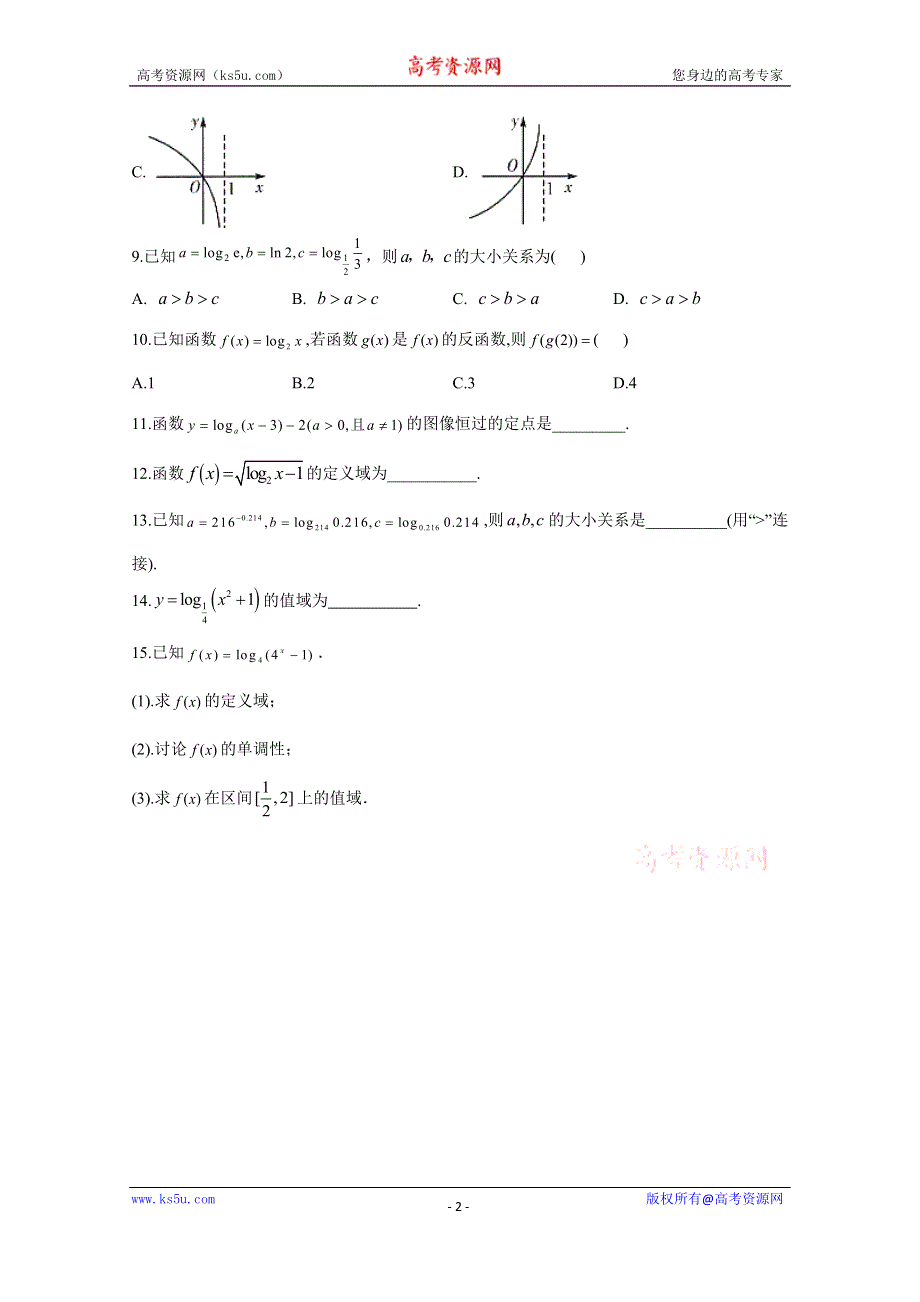 高考资源网（ks5u.com） 高考资源网 您身边的高考专家
C. y O 1 x D. y O 1 x
9.已知 a = log₂ e, b = ln 2, c = log_{1/2} 1/3，则 a，b，c 的大小关系为( )
A. a > b > c B. b > a > c C. c > b > a D. c > a > b
10.已知函数 f(x) = log₂ x ,若函数 g(x) 是 f(x) 的反函数,则 f(g(2)) = ( )
A.1 B.2 C.3 D.4
11.函数 y = logₐ(x − 3) − 2(a > 0, 且a ≠ 1) 的图像恒过的定点是_________.
12.函数 f(x) = √(log₂ x − 1) 的定义域为___________.
13.已知 a = 216^{−0.214}, b = log_{214} 0.216, c = log_{0.216} 0.214 ,则 a,b,c 的大小关系是__________(用“>”连
接).
14. y = log_{1/4}(x² + 1) 的值域为___________.
15.已知 f(x) = log₄(4ˣ − 1) .
(1).求 f(x) 的定义域;
(2).讨论 f(x) 的单调性;
(3).求 f(x) 在区间 [1/2, 2] 上的值域.
高考资源网
www.ks5u.com - 2 - 版权所有@高考资源网